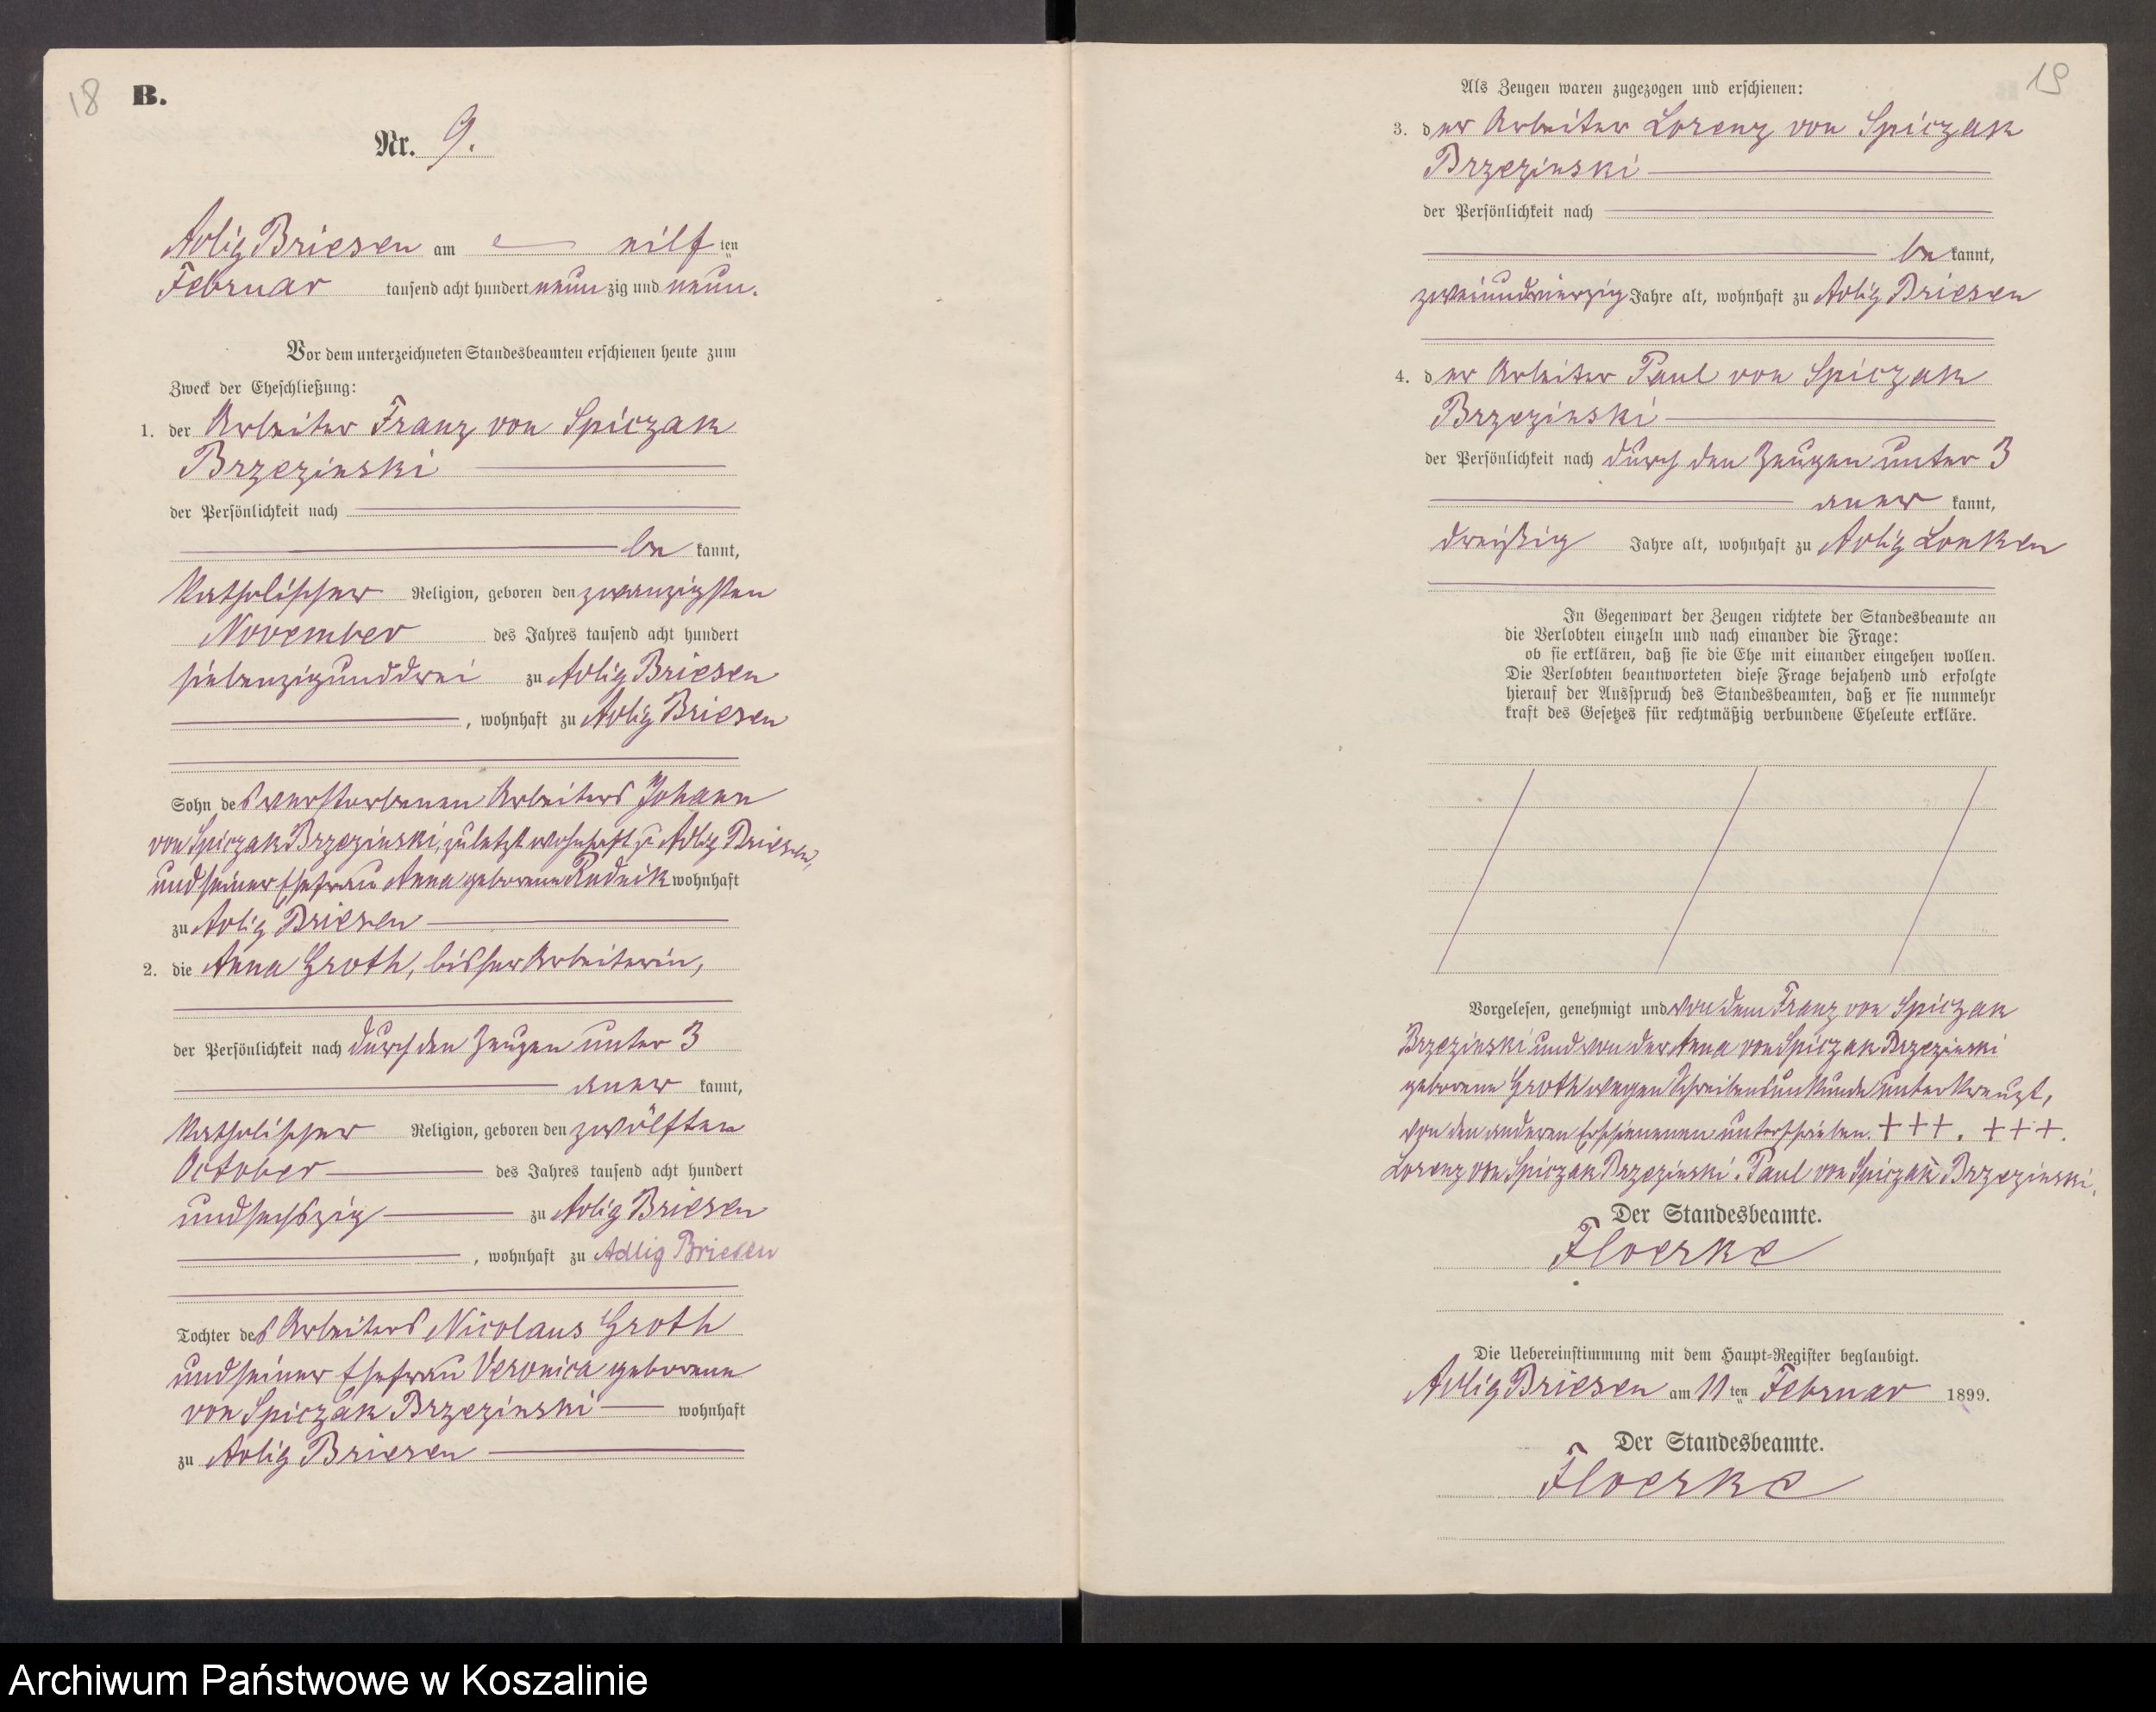 18
B.
Nr. 9.
Adlig Briesen am eilf ten
Februar tausend acht hundert neun zig und neun.
Vor dem unterzeichneten Standesbeamten erschienen heute zum
Zweck der Eheschließung:
1. der Arbeiter Franz von Spiczak
Brzezinski
der Persönlichkeit nach
be kannt,
katholischer Religion, geboren den zwanzigsten
November des Jahres tausend acht hundert
siebenzigunddrei zu Adlig Briesen
, wohnhaft zu Adlig Briesen
Sohn des verstorbenen Arbeiters Johann
von Spiczak Brzezinski, zuletzt wohnhaft zu Adlig Briesen,
und seiner Ehefrau Anna geborene Rudnik wohnhaft
zu Adlig Briesen
2. die Anna Groth, bisher Arbeiterin,
der Persönlichkeit nach durch den Zeugen unter 3
aner kannt,
katholischer Religion, geboren den zwölften
October des Jahres tausend acht hundert
undsechszig zu Adlig Briesen
, wohnhaft zu Adlig Briesen
Tochter des Arbeiters Nicolaus Groth
und seiner Ehefrau Veronica geborene
von Spiczak Brzezinski wohnhaft
zu Adlig Briesen
19
Als Zeugen waren zugezogen und erschienen:
3. der Arbeiter Lorenz von Spiczak
Brzezinski
der Persönlichkeit nach
be kannt,
zweiundvierzig Jahre alt, wohnhaft zu Adlig Briesen
4. der Arbeiter Paul von Spiczak
Brzezinski
der Persönlichkeit nach durch den Zeugen unter 3
aner kannt,
dreißig Jahre alt, wohnhaft zu Adlig Lonken
In Gegenwart der Zeugen richtete der Standesbeamte an
die Verlobten einzeln und nach einander die Frage:
ob sie erklären, daß sie die Ehe mit einander eingehen wollen.
Die Verlobten beantworteten diese Frage bejahend und erfolgte
hierauf der Ausspruch des Standesbeamten, daß er sie nunmehr
kraft des Gesetzes für rechtmäßig verbundene Eheleute erkläre.
Vorgelesen, genehmigt und von dem Franz von Spiczak
Brzezinski und von der Anna von Spiczak Brzezinski
geborene Groth wegen Schreibensunkunde unterkreuzt,
von den anderen Erschienenen unterschrieben. +++. +++.
Lorenz von Spiczak Brzezinski. Paul von Spiczak Brzezinski.
Der Standesbeamte.
Floerke
Die Uebereinstimmung mit dem Haupt-Register beglaubigt.
Adlig Briesen am 11 ten Februar 1899.
Der Standesbeamte.
Floerke
Archiwum Państwowe w Koszalinie